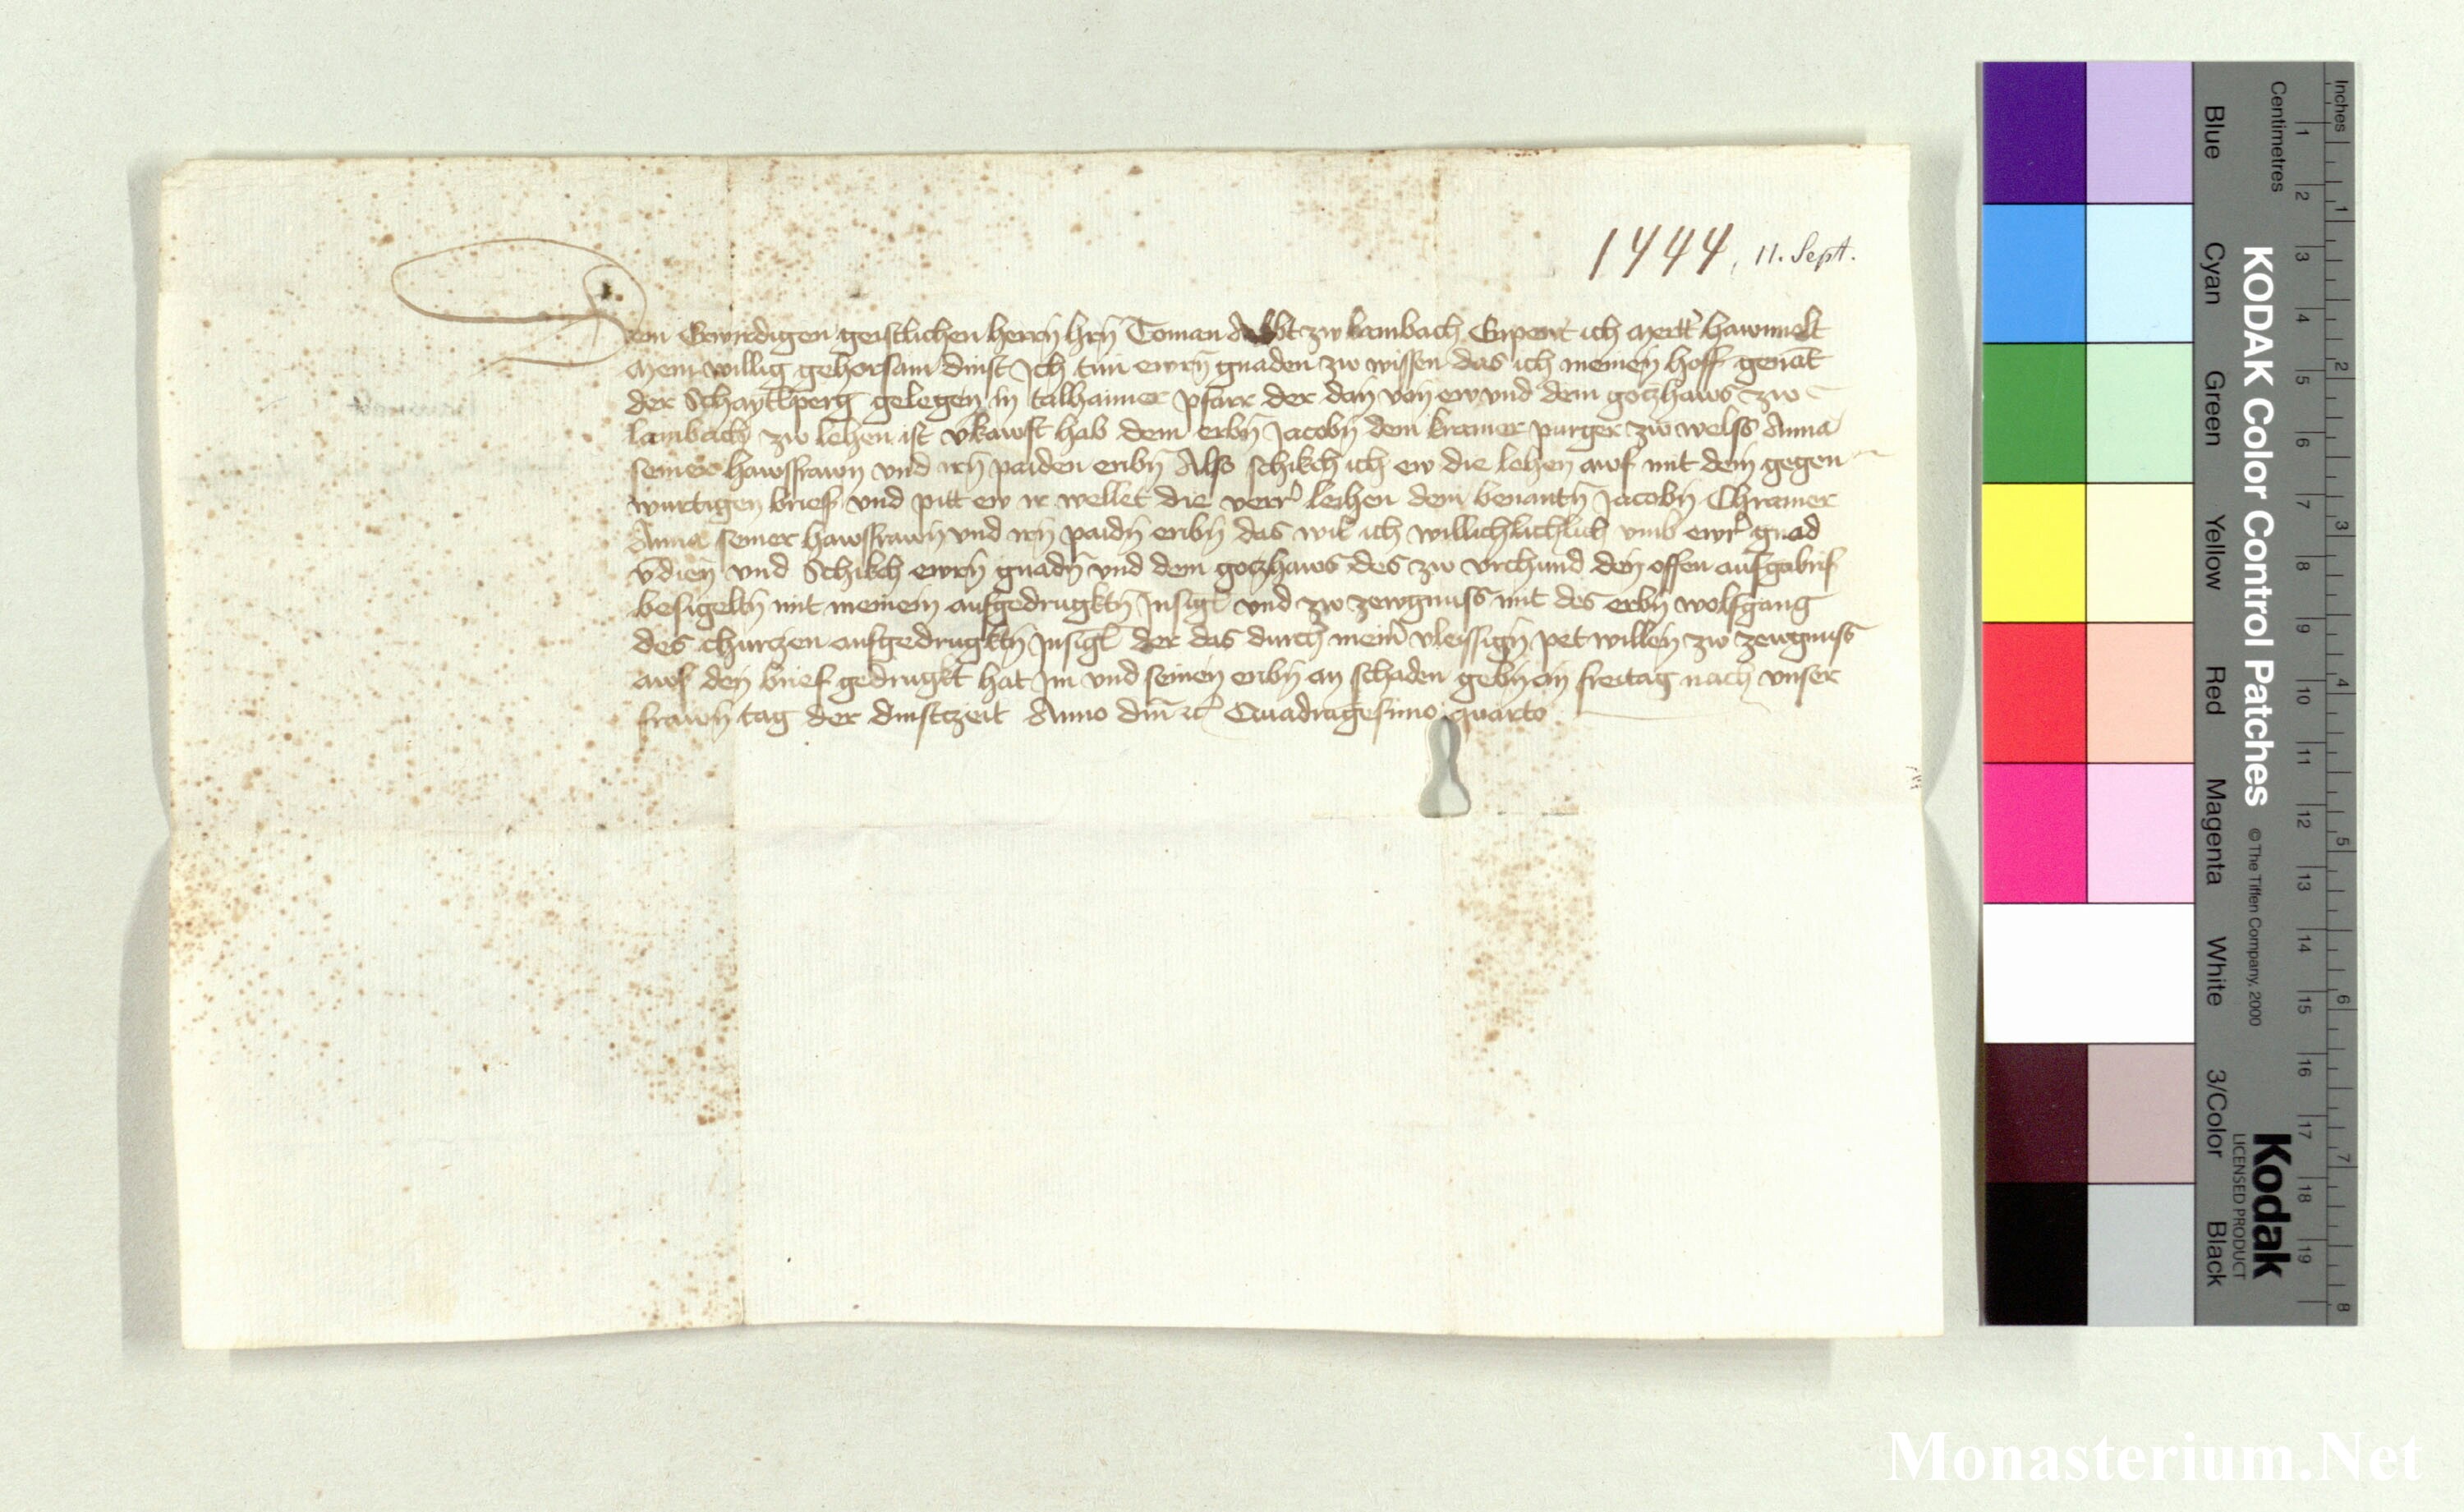 1444, 11. Sept.
Dem Erwirdigen geistlichen herrn hrn Toman Abbt zw lambach Enpewt ich
mein willig gehorsam dinst Ich tun ewrn gnaden zw wissen das ich meinen hoff genat
der Schayttperg gelegen in talhaimer pfarr der dan von ew und dem gotzhaws zw
lambach zw lehen ist vkawft hab dem erbn Jacobn dem kramer purger zw welss Anna
seiner hawsfrawn und irn paiden eribn Also schikch ich ew die lehen awf mit dem gegen
wurtigen brieff und pitt ew ir wellet die verr leihen dem benantn Jacobn Chramer
Anna seiner hawsfrawn vnd irn paidn eribn das wil ich willichlichlich vmb ewr gnad
vdien vnd Schikch ewrn gnadn vnd dem gotzhaws des zw vrchund den offen aufgabrif
besigeltn mit meinem aufgedrugktn Insigl vnd zw zewgnuss mit des erbn wolfgang
des churczen aufgedrugktn Insigl der das durch meinr vleissign pet willen zw zewgnuss
awf den brief gedrugkt hat Im vnd seinen eribn an schaden gebn an freitag nach vnser
frawn tag der dinstzeit Anno dm rc Quadragesimo quarto
Inches
Centimetres
1 2 3 4 5 6 7 8 9 10 11 12 13 14 15 16 17 18 19
1 2 3 4 5 6 7 8
KODAK Color Control Patches © The Tiffen Company, 2000
Kodak
LICENSED PRODUCT
Blue Cyan Green Yellow Red Magenta White 3/Color Black
Monasterium.Net